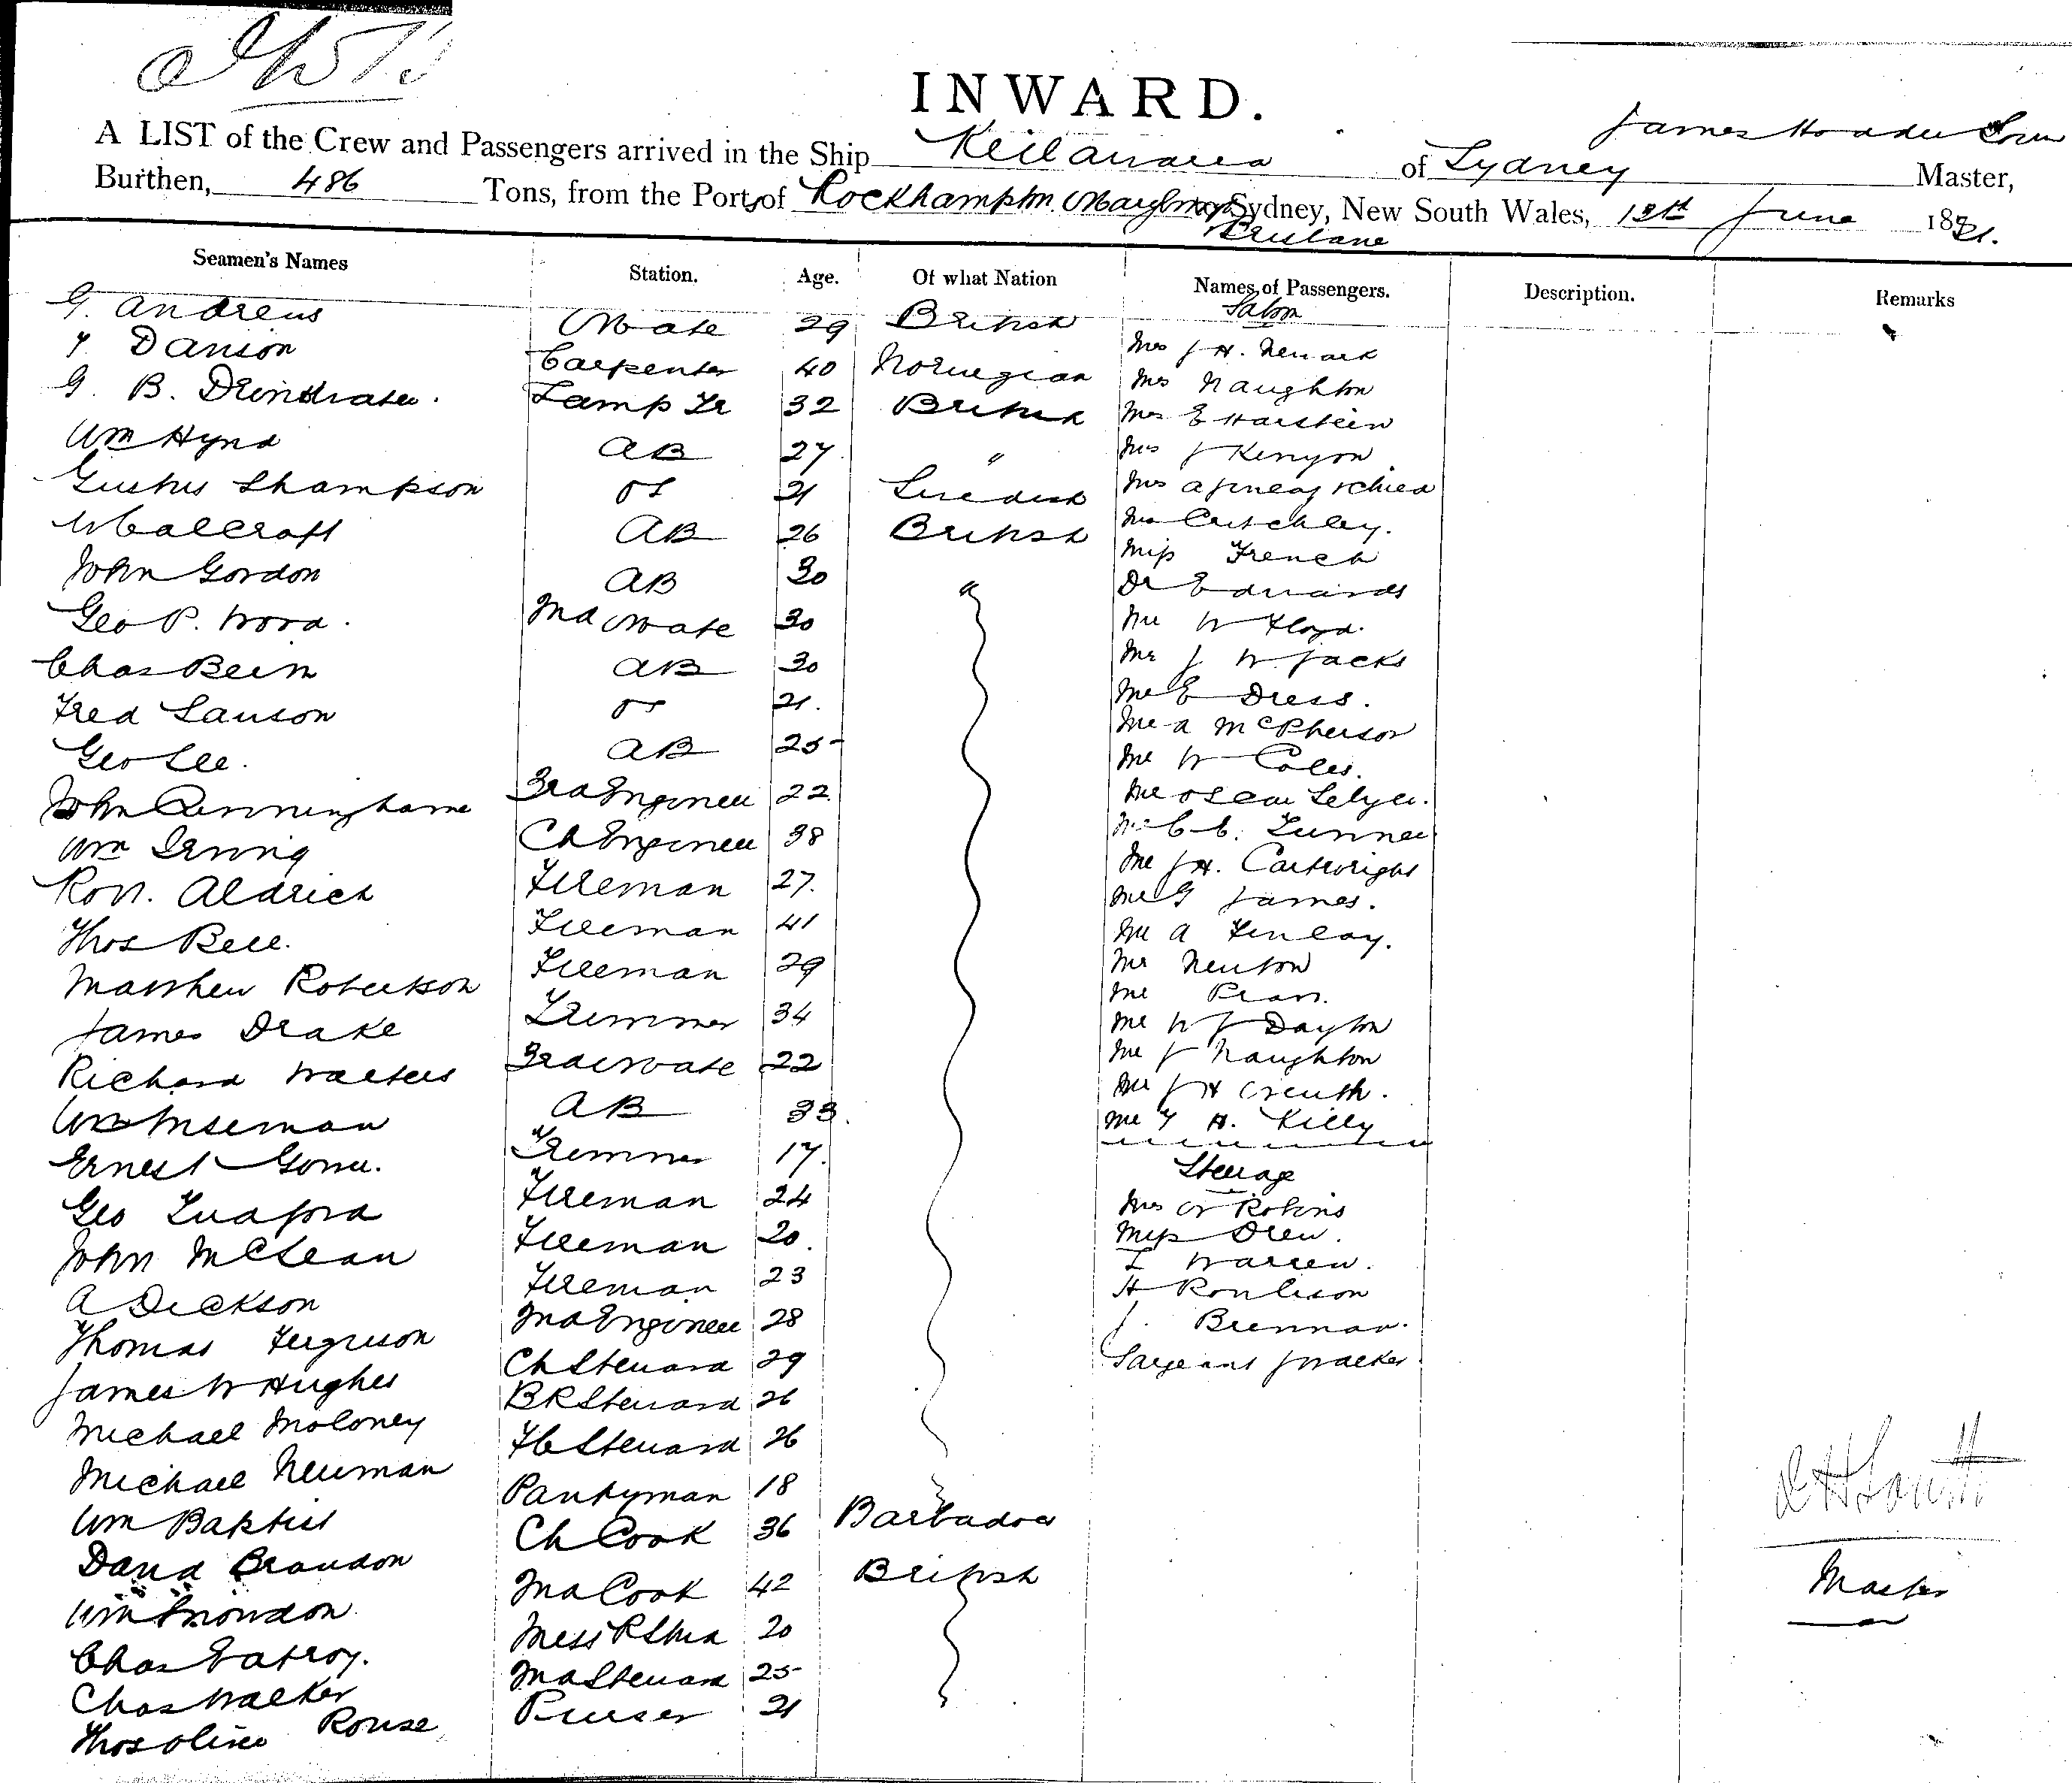 INWARD.
A LIST of the Crew and Passengers arrived in the Ship Keilawarra of Sydney James Master,
Burthen, 486 Tons, from the Ports of Rockhampton Sydney, New South Wales, 12th June 18
Brisbane
Seamen's Names Station. Age. Of what Nation Names of Passengers. Description. Remarks
Saloon
G. Andrews Mate 29 British Mrs J H. Newark
Carpenter 40 Norwegian Mrs Naughton
G. B. Lamp Tr 32 British Mrs E Harstein
Wm Hynd AB 27 " Mrs J Kenyon
OS 21 Swedish Mrs
W Calcraft AB 26 British Mrs Critchley.
John Gordon AB 30 " Miss French
Geo P. Wood. 2nd Mate 30 Dr Edwards
Chas Bein AB 30 Mr W Floyd.
Fred Lawson OS 21. Mr J W Jacks
Geo Lee. AB 25 Mr E Dress.
John Cunninghame 3rd Engineer 22 Mr A McPherson
Wm Irving Ch Engineer 38 Mr W Coles.
Robt. Aldrich Fireman 27. Mr Oscar
Thos Bell. Fireman 41 Mr C. C.
Matthew Robertson Fireman 29 Mr J H. Cartwright
James Drake Trimmer 34 Mr G James.
Richard Walters 3rd Mate 22 Mr A Finlay.
Wm AB 33. Mr Newton
Ernest Trimmer 17. Mr
Geo Fireman 24 Mr W J Dayton
John McLean Fireman 20. Mr J Naughton
A Dickson Fireman 23 Mr J H
Thomas Ferguson 2nd Engineer 28 Mr T H. Killy
James W Hughes Ch Steward 29 Steerage
Michael Moloney BR Steward 26 Mrs Robins
Michael Newman FC Steward 26 Miss Drew.
Wm Baptist Pantryman 18 Warren.
David Brandon Ch Cook 36 Barbadoes H Rowlison
Wm Snowdon 2nd Cook 42 British J. Brennan.
Chas Mess R Stwd 20 Sargeant J Walker
Chas Walker 2nd Steward 25
Thos Oliver Rouse Purser 21
Master